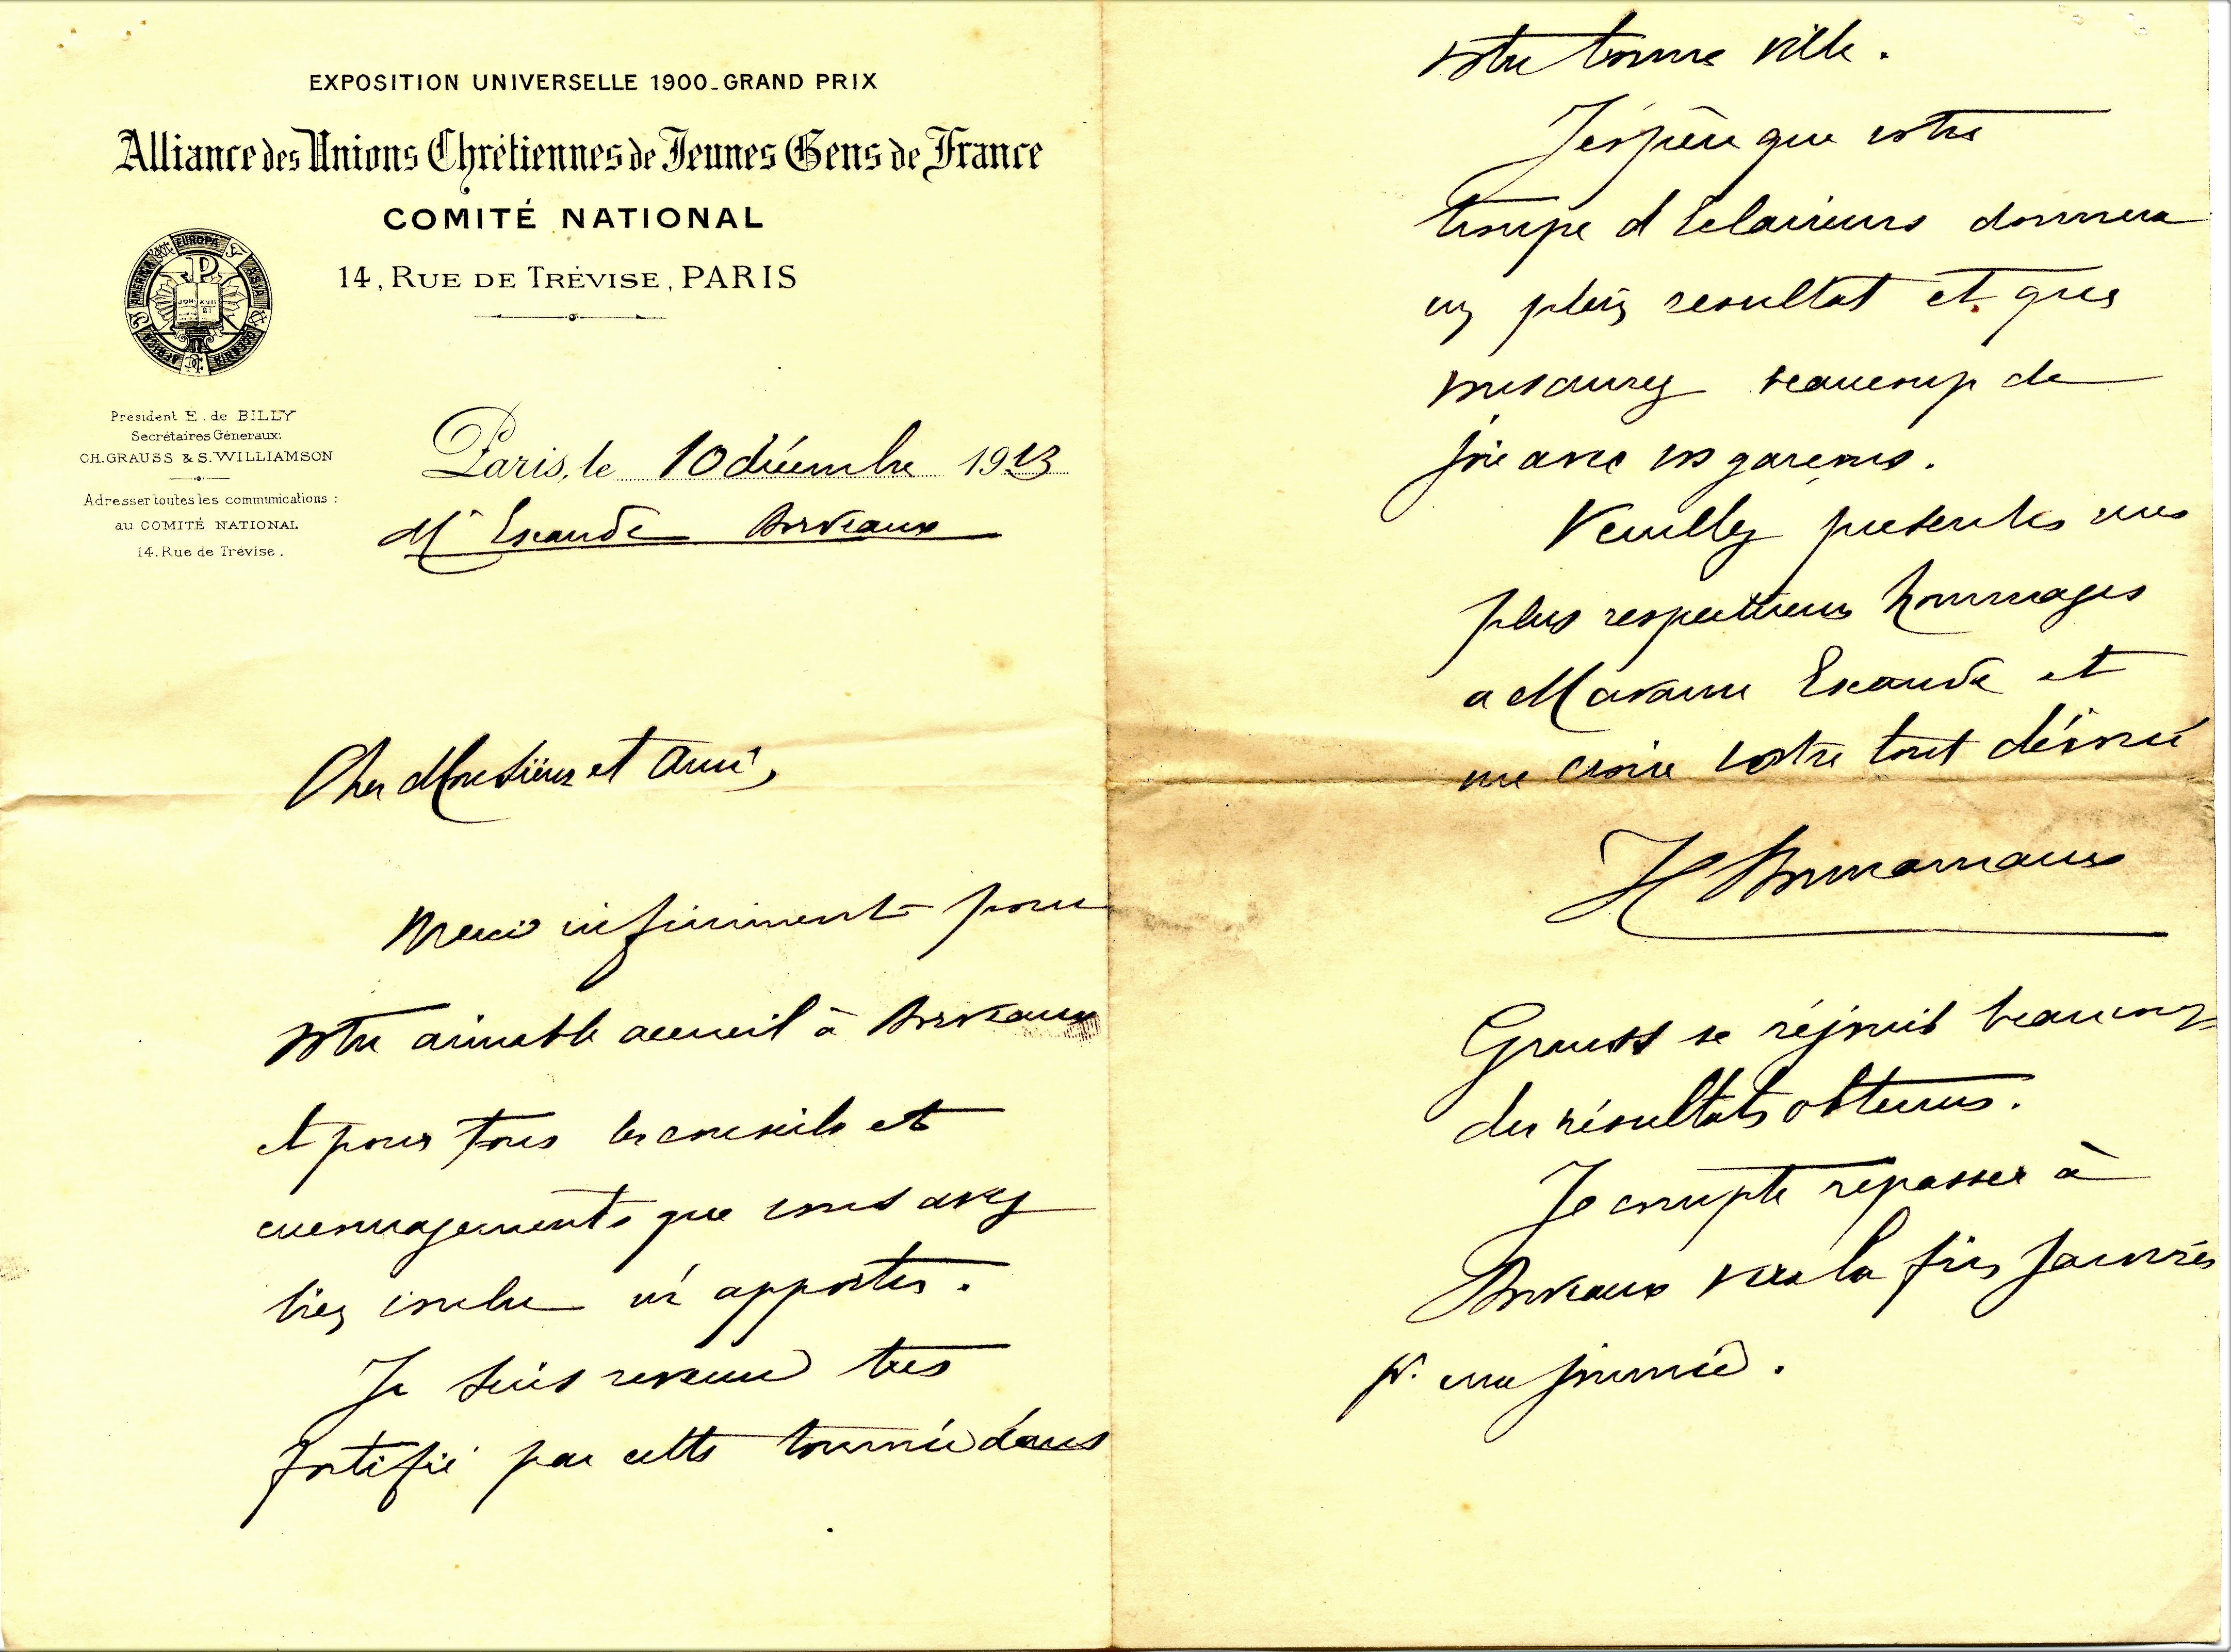 EXPOSITION UNIVERSELLE 1900_GRAND PRIX
Alliance des Unions Chrétiennes de Jeunes Gens de France
COMITÉ NATIONAL
14, RUE DE TRÉVISE, PARIS
EUROPA
ASIA
OCEANIA
AFRICA
AMERICA
P
JOH. XVII
21
Président E. de BILLY
Secrétaires Géneraux:
CH.GRAUSS & S.WILLIAMSON
Adresser toutes les communications :
au COMITÉ NATIONAL
14, Rue de Trévise.
Paris, le 10 décembre 1913
Mr Escande Bordeaux
Cher Monsieur et ami,
Merci infiniment pour
votre aimable accueil à Bordeaux
et pour tous les conseils et
encouragements que vous avez
bien voulu m'apporter.
Je suis revenu très
fortifié par cette tournée dans
votre bonne ville.
J'espère que votre
troupe d'Eclaireurs donnera
un plein resultat et que
vous aurez beaucoup de
joie avec vos garçons.
Veuillez presenter mes
plus respectueux hommages
a Madame Escande et
me croire votre tout dévoué
H Bonnamaux
Grauss se réjouit beaucoup
des résultats obtenus.
Je compte repasser à
Bordeaux vers la fin Janvier
pr. une journée.